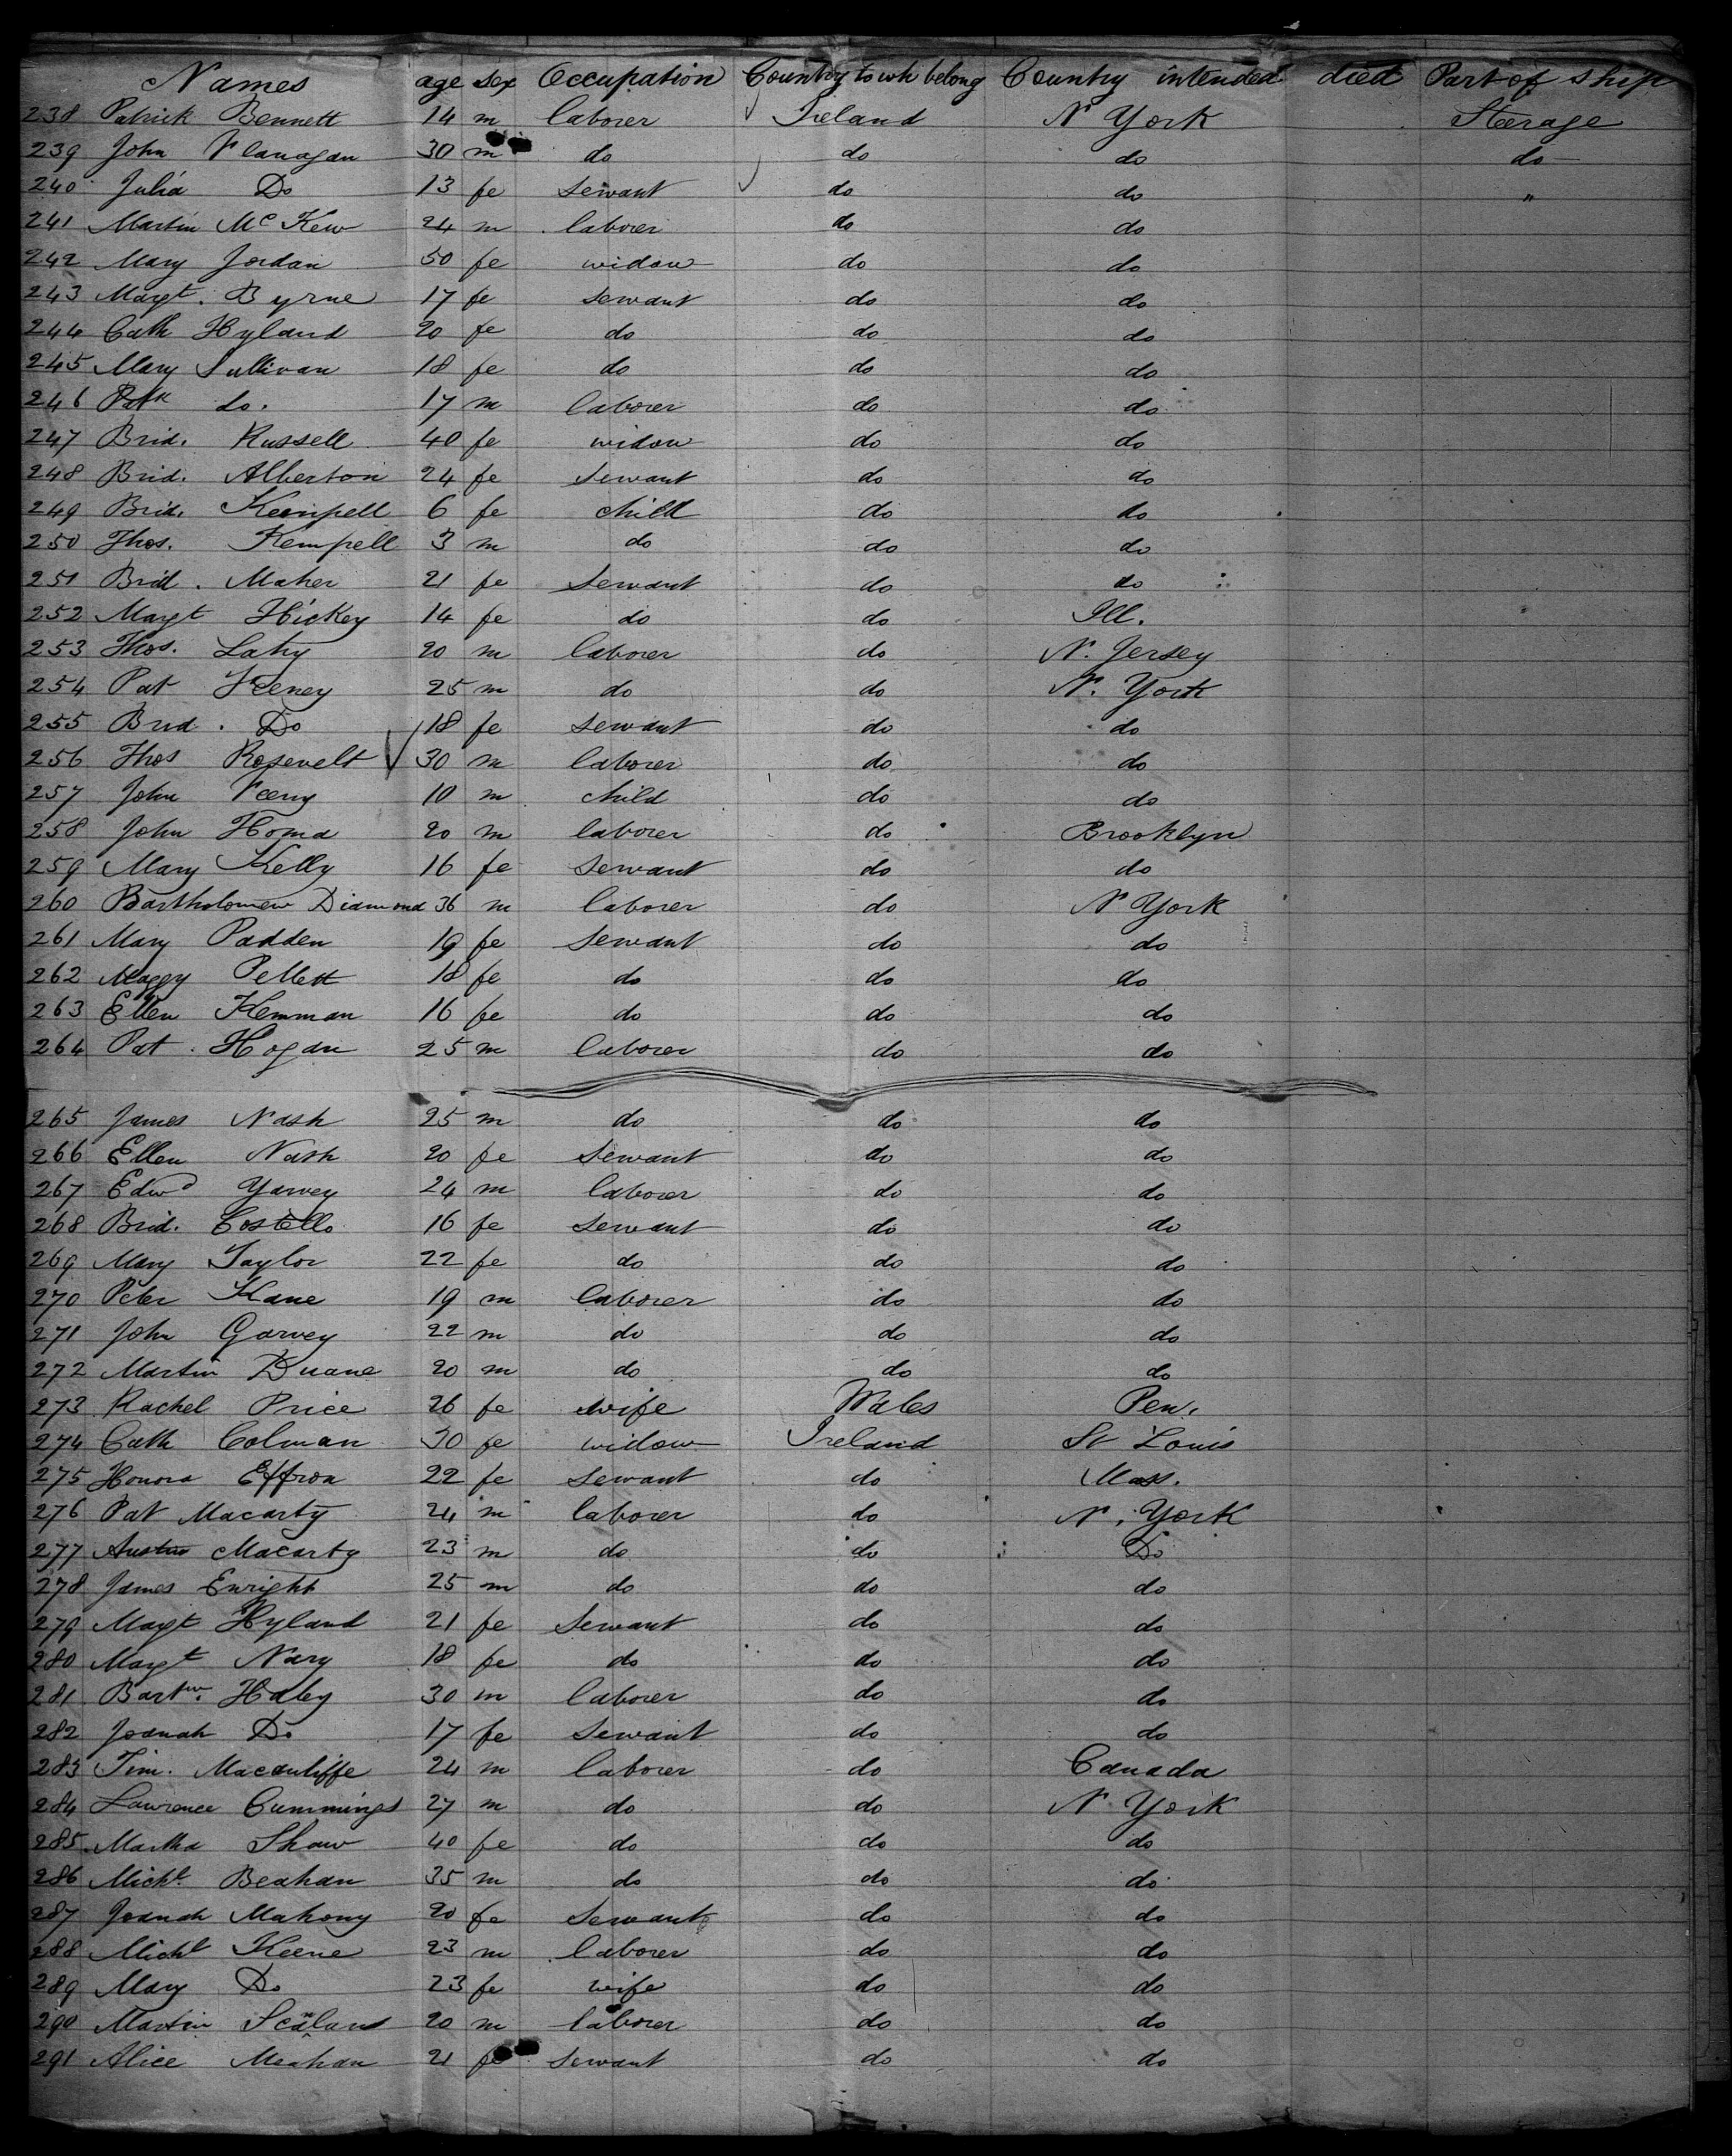 Names age sex Occupation Country to wh belong Country intended died Part of ship
238 Patrick Bennett 14 m laborer Ireland N York Steerage
239 John Flanagan 30 m do do do do
240 Julia Do 13 fe servant do do "
241 Martin Mc Kew 24 m laborer do do
242 Mary Jordan 50 fe widow do do
243 Margt. Byrne 17 fe servant do do
244 Cath Hyland 20 fe do do do
245 Mary Sullivan 18 fe do do do
246 Patk do. 17 m laborer do do
247 Brid. Russell 40 fe widow do do
248 Brid. Alberton 24 fe servant do do
249 Brid. Kempell 6 fe child do do
250 Thos. Kempell 3 m do do do
251 Brid. Maher 21 fe servant do do
252 Margt Hickey 14 fe do do Ill.
253 Thos. Lahy 20 m laborer do N. Jersey
254 Pat Keney 25 m do do N. York
255 Brid. Do 18 fe servant do do
256 Thos Rosevelt 30 m laborer do do
257 John 10 m child do do
258 John 20 m laborer do Brooklyn
259 Mary Kelly 16 fe servant do do
260 Bartholomew Diamond 36 m laborer do N York
261 Mary Padden 19 fe servant do do
262 Maggy Pellett 18 fe do do do
263 Ellen Kemman 16 fe do do do
264 Pat. Hogan 25 m laborer do do
265 James Nash 25 m do do do
266 Ellen Nash 20 fe servant do do
267 Edwd Yarvey 24 m laborer do do
268 Brid. Costello 16 fe servant do do
269 Mary Taylor 22 fe do do do
270 Peter Kane 19 m laborer do do
271 John Garvey 22 m do do do
272 Martin Duane 20 m do do do
273 Rachel Price 26 fe wife Wales Pen.
274 Cath Colman 30 fe widow Ireland St Louis
275 Honora Effron 22 fe servant do Mass.
276 Pat Macarty 24 m laborer do N. York
277 Austin Macarty 23 m do do Do
278 James Enright 25 m do do do
279 Margt Hyland 21 fe servant do do
280 Margt Nary 18 fe do do do
281 Bartw. Haley 30 m laborer do do
282 Joanah Do 17 fe servant do do
283 Tim. Macauliffe 24 m laborer do Canada
284 Lawrence Cummings 27 m do do N York
285 Martha Shaw 40 fe do do do
286 Michl. Beahan 35 m do do do
287 Joanah Mahony 20 fe servant do do
288 Michl Keene 23 m laborer do do
289 Mary Do 23 fe wife do do
290 Martin 20 m laborer do do
291 Alice Meahan 21 fe servant do do